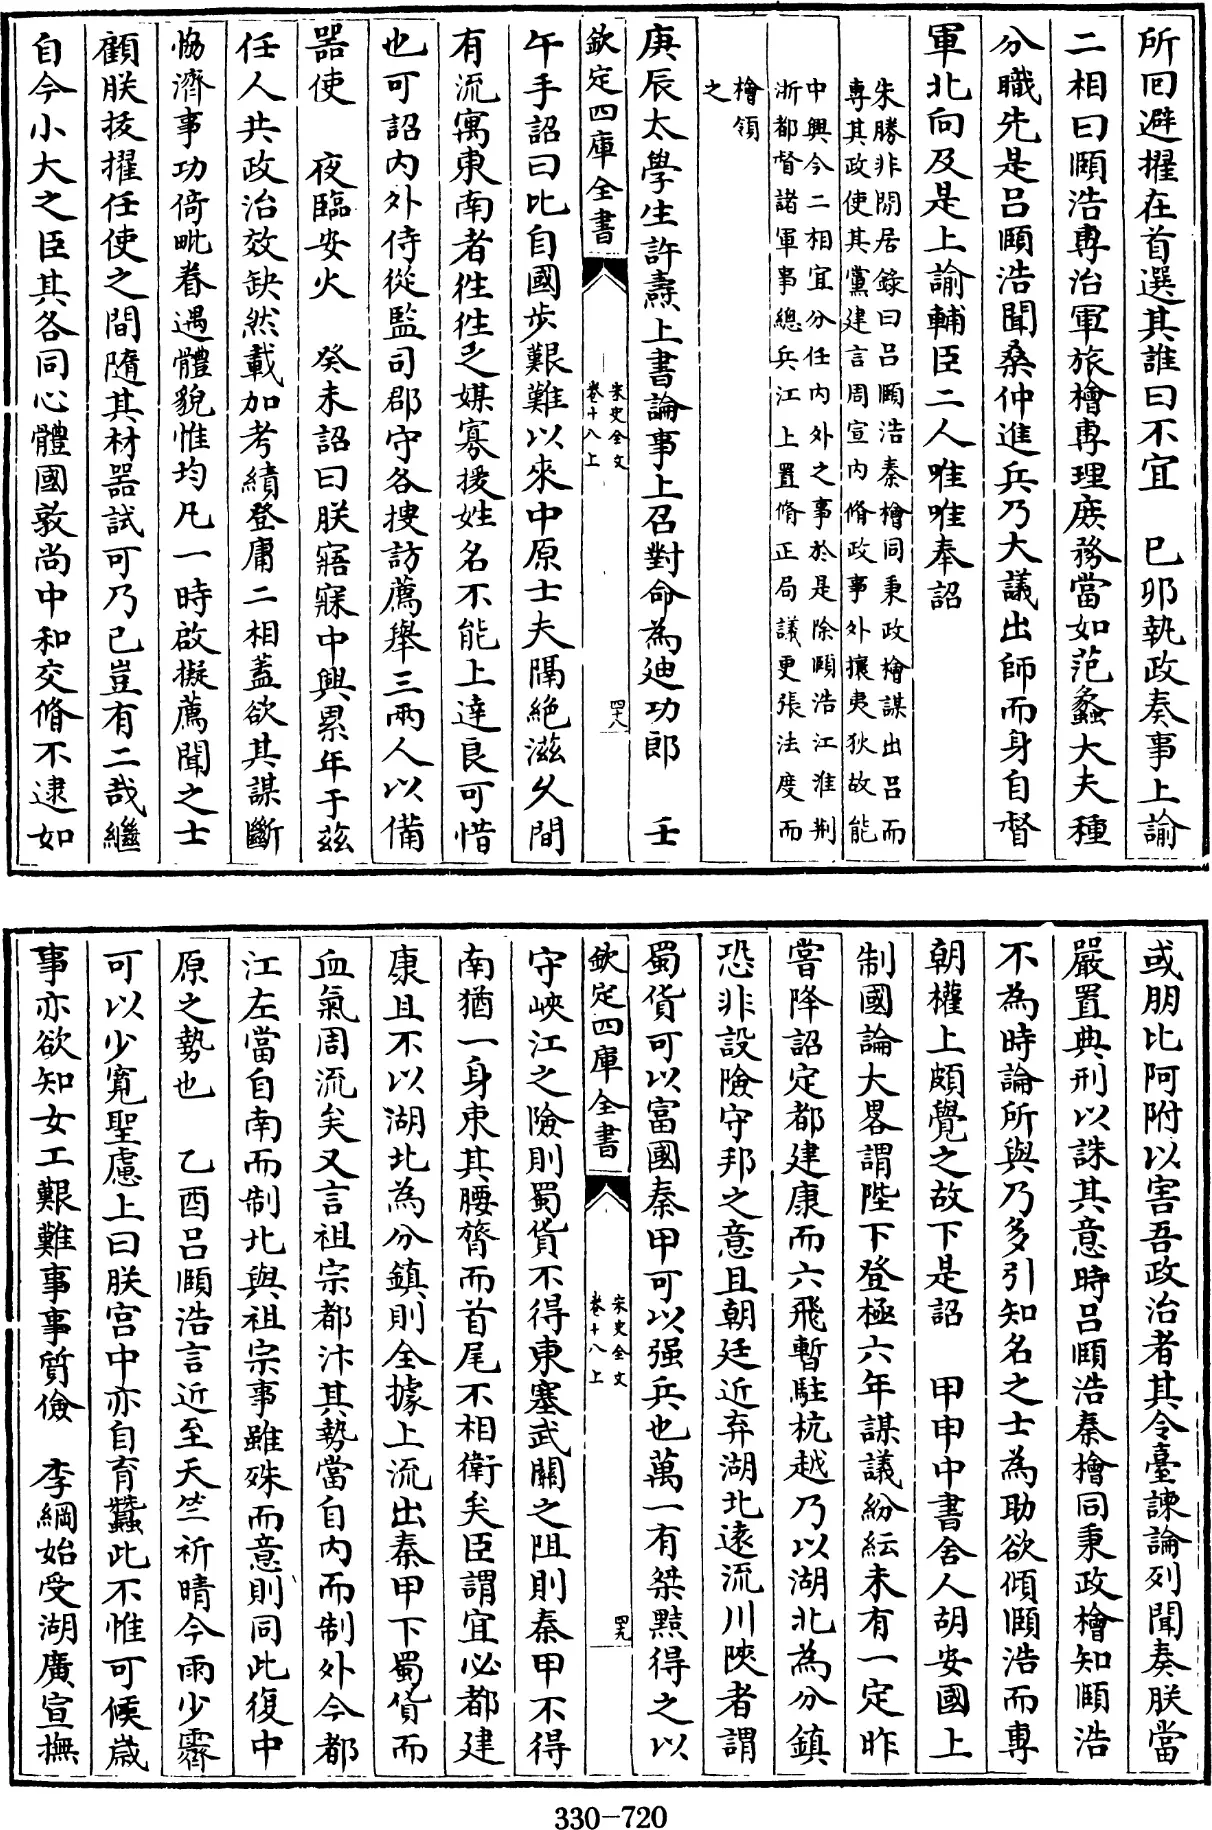 所回避擢在首選其誰曰不宜　已卯執政奏事上諭
二相曰頤浩專治軍旅檜專理庶務當如范蠡大夫種
分職先是吕頤浩聞桑仲進兵乃大議出師而身自督
軍北向及是上諭輔臣二人唯唯奉詔
朱勝非閒居錄曰吕頤浩秦檜同秉政檜謀出吕而
專其政使其黨建言周宣内脩政事外攘夷狄故能
中興今二相宜分任内外之事於是除頤浩江淮荆
浙都督諸軍事總兵江上置脩正局議更張法度而
檜領
之
庚辰太學生許燾上書論事上召對命為迪功郎　壬
欽定四庫全書
宋史全文
卷十八上
四十八
午手詔曰比自國步艱難以來中原士夫隔絶滋久間
有流寓東南者往往乏媒寡援姓名不能上達良可惜
也可詔内外侍從監司郡守各搜訪薦舉三兩人以備
器使　夜臨安火　癸未詔曰朕寤寐中興累年于兹
任人共政治效缺然載加考績登庸二相蓋欲其謀斷
協濟事功倚毗眷遇體貌惟均凡一時啟擬薦聞之士
顧朕拔擢任使之間隨其材器試可乃已豈有二哉繼
自今小大之臣其各同心體國敦尚中和交脩不逮如
或朋比阿附以害吾政治者其令臺諫論列聞奏朕當
嚴置典刑以誅其意時吕頤浩秦檜同秉政檜知頤浩
不為時論所與乃多引知名之士為助欲傾頤浩而專
朝權上頗覺之故下是詔　甲申中書舍人胡安國上
制國論大畧謂陛下登極六年謀議紛紜未有一定昨
嘗降詔定都建康而六飛暫駐杭越乃以湖北為分鎮
恐非設險守邦之意且朝廷近弃湖北逺流川陜者謂
蜀貨可以富國秦甲可以强兵也萬一有桀黠得之以
欽定四庫全書
宋史全文
卷十八上
四十九
守峽江之險則蜀貨不得東塞武關之阻則秦甲不得
南猶一身束其腰膂而首尾不相衛矣臣謂宜必都建
康且不以湖北為分鎮則全據上流出秦甲下蜀貨而
血氣周流矣又言祖宗都汴其勢當自内而制外今都
江左當自南而制北與祖宗事雖殊而意則同此復中
原之勢也　乙酉吕頤浩言近至天竺祈晴今雨少霽
可以少寬聖慮上曰朕宫中亦自育蠶此不惟可候歲
事亦欲知女工艱難事事質儉　李綱始受湖廣宣撫
330-720